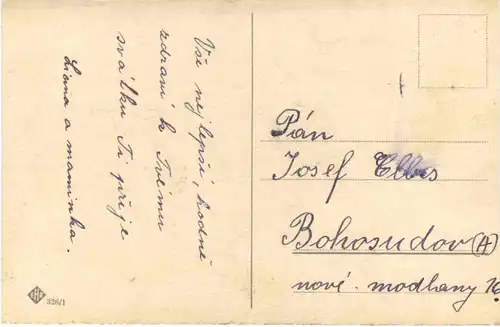 Vše nejlepší, hodně
zdraví k Tvému
svátku Ti přeje
Liana a maminka.
Pán
Josef
Bohosudov (A)
nové. modlany 16
326/1